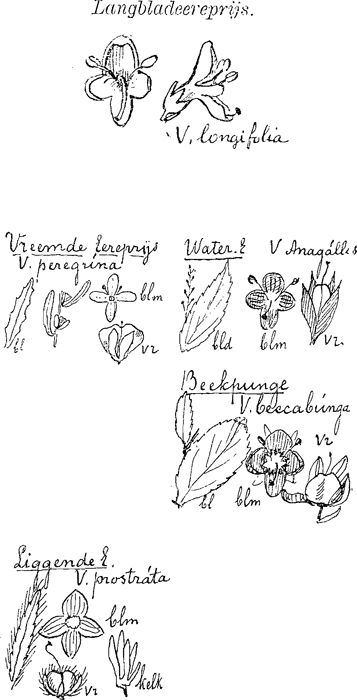 Langbladeereprijs.
V. longifolia
Vreemde Eereprijs
V. peregrína
bl
blm
vr
Water. E
V Anagállis
bld
blm
vr.
Beekpunge
V. beccabúnga
vr
bl
blm
Liggende E.
V. prostráta
blm
vr
kelk